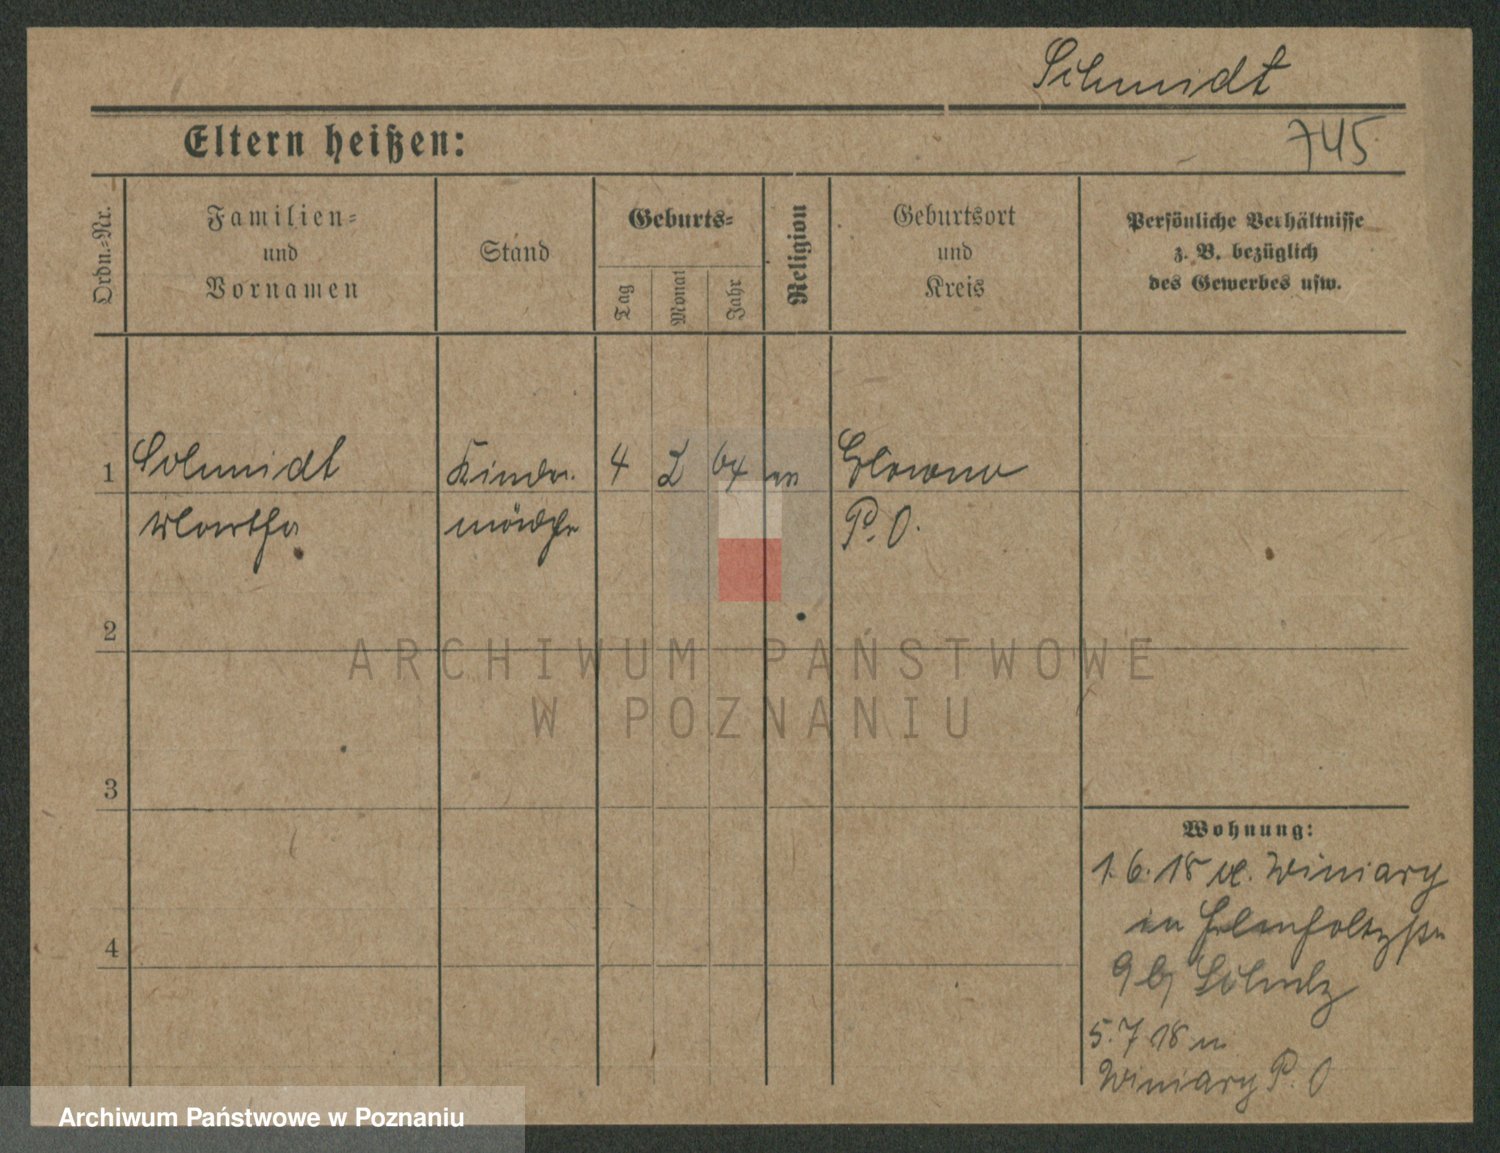 Schmidt
Eltern heißen:
745
Ordn.=Nr.
Familien=
und
Vornamen
Stand
Geburts=
Tag
Monat
Jahr
Religion
Geburtsort
und
Kreis
Persönliche Verhältnisse
z. B. bezüglich
des Gewerbes usw.
1 Schmidt Kinder. 4 2 Glowno
Martha mädchen P. O.
2
3
4
ARCHIWUM PAŃSTWOWE
W POZNANIU
Wohnung:
1. 6. 18 v. Winiary
in
9 b/ Schulz
5. 7 18 n
Winiary P. O
Archiwum Państwowe w Poznaniu